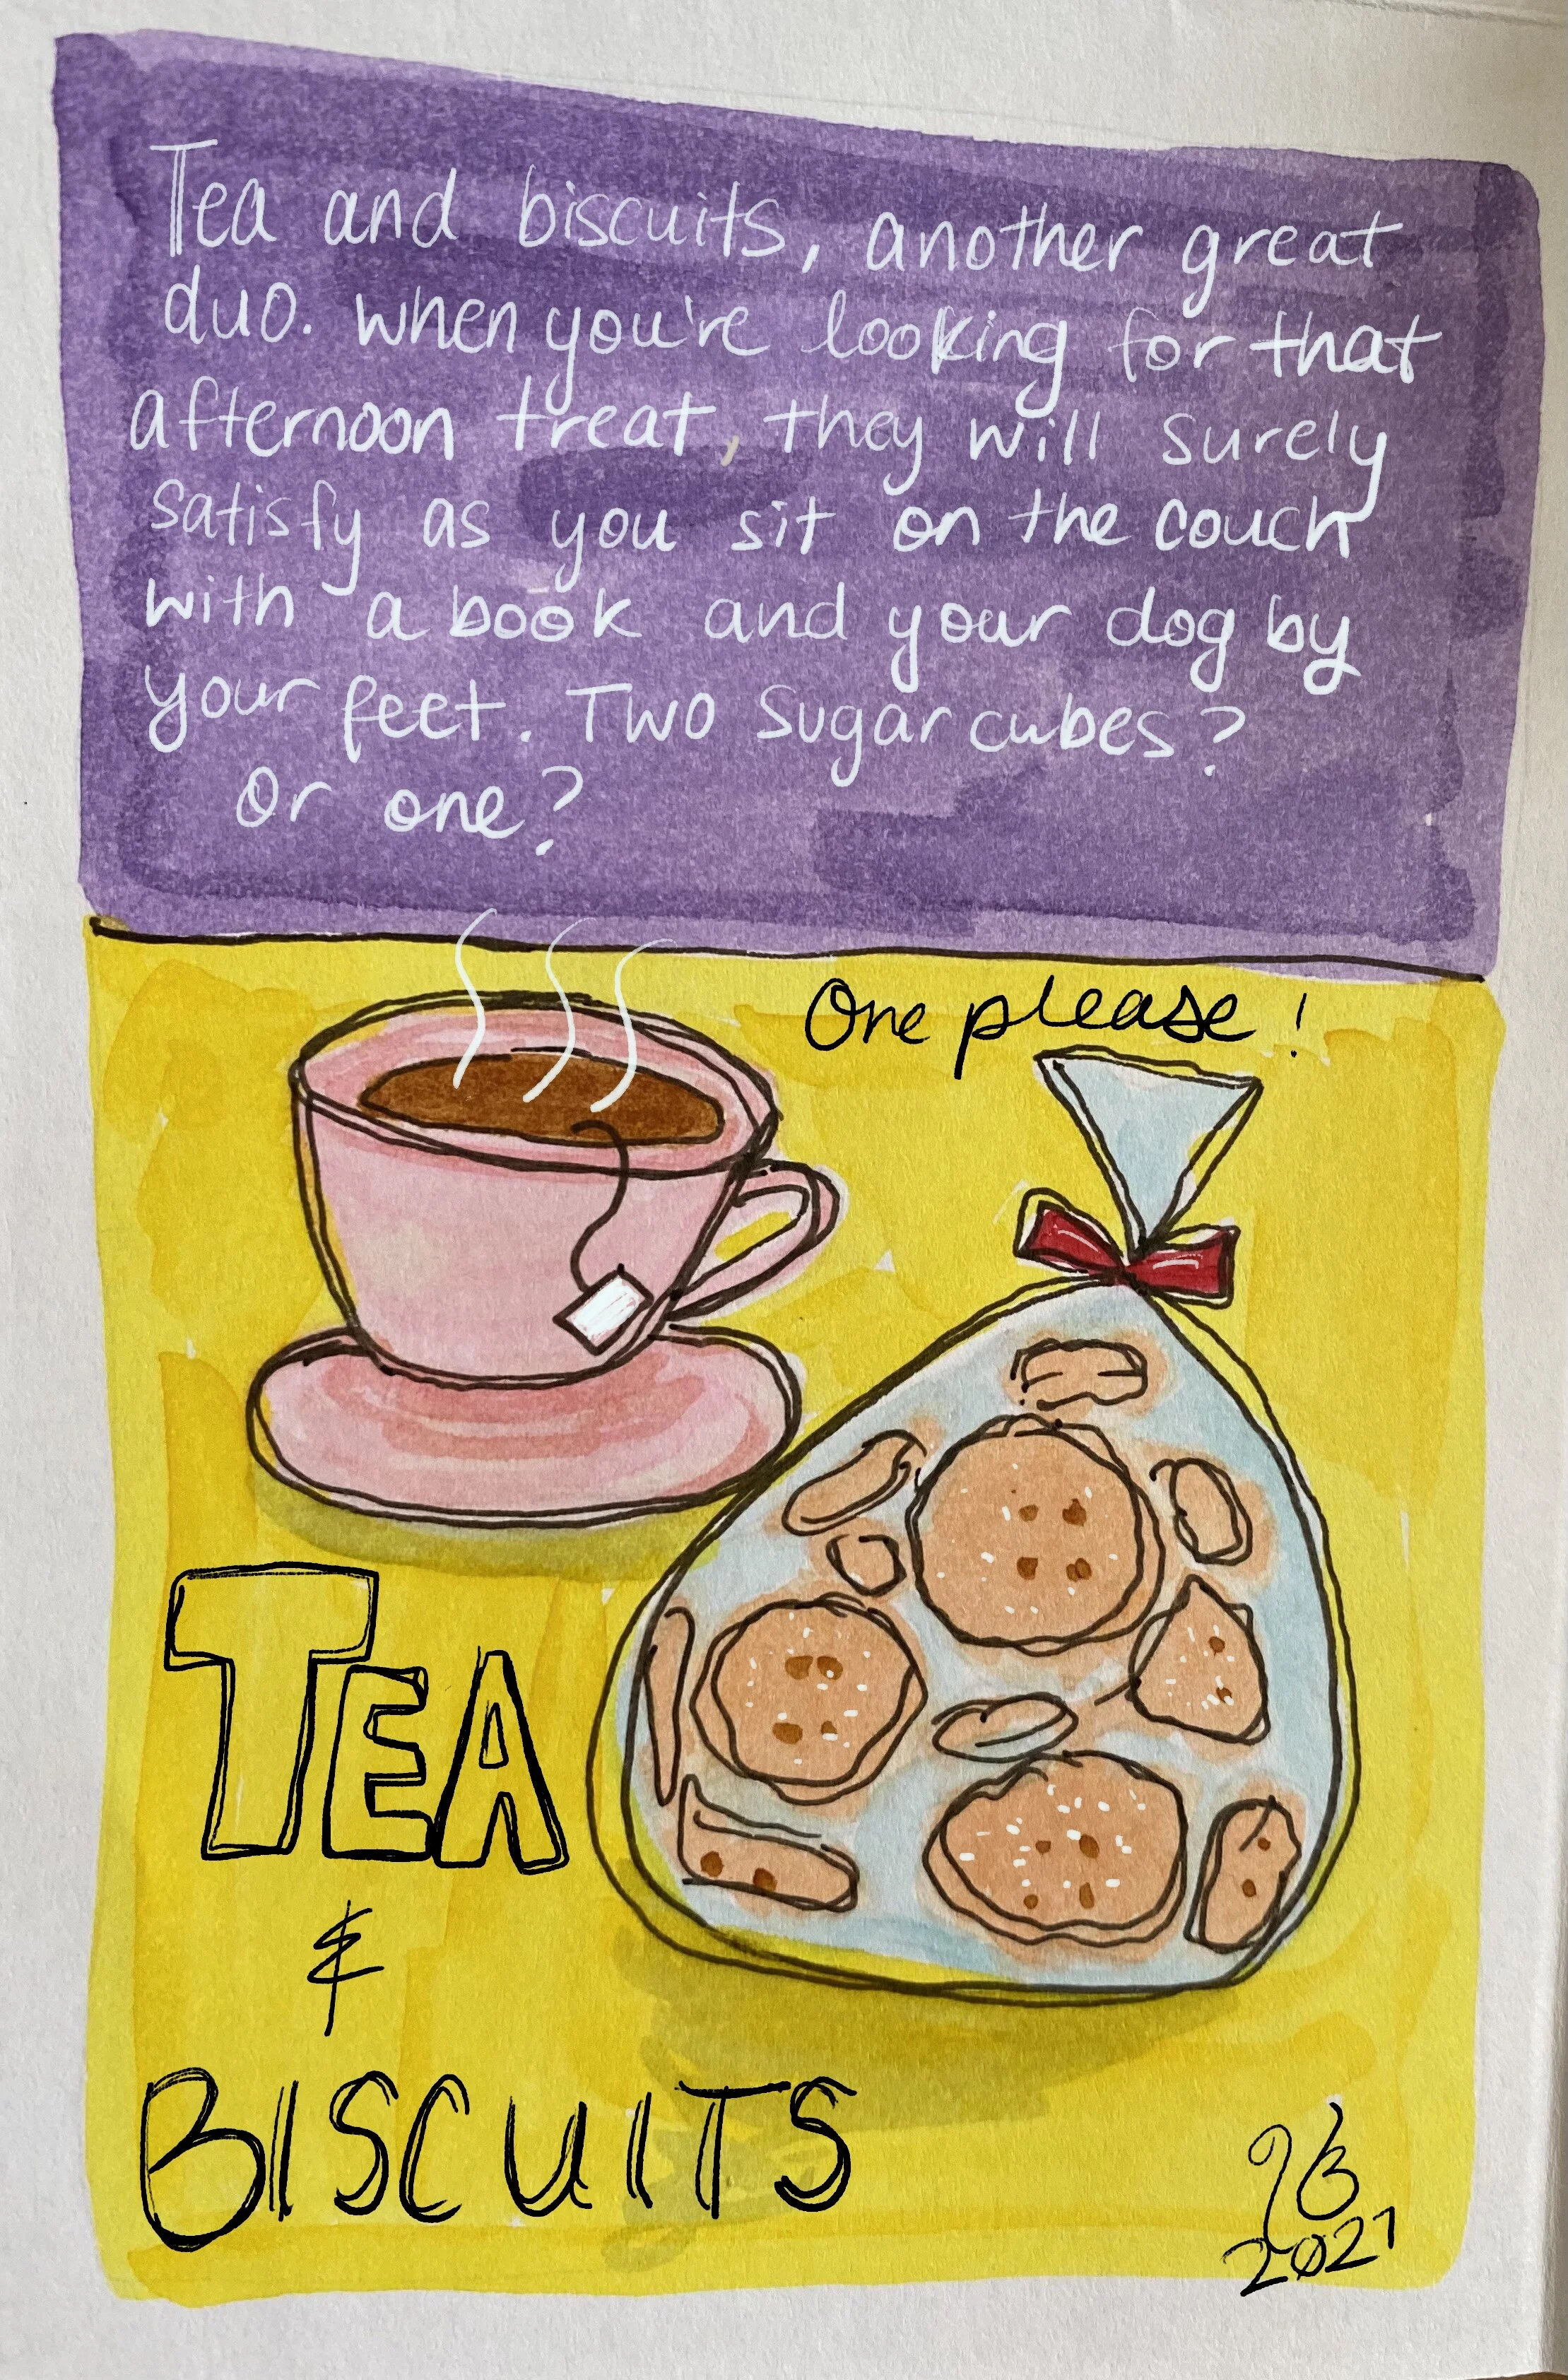 Tea and biscuits, another great
duo. When you're looking for that
afternoon treat, they will surely
satisfy as you sit on the couch
with a book and your dog by
your feet. Two sugar cubes?
Or one?
One please!
TEA
&
BISCUITS
2021